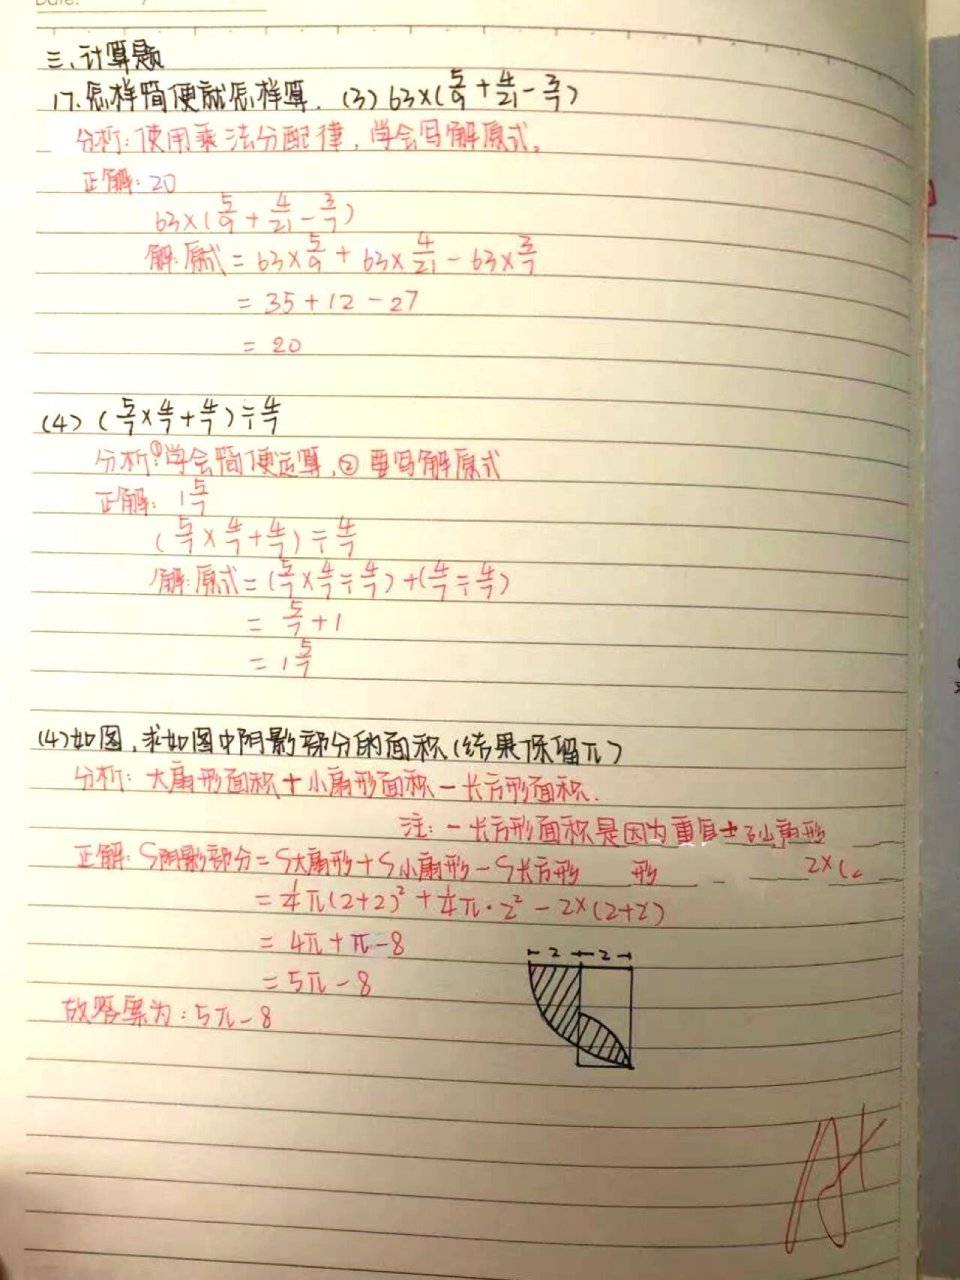 Date:
三、计算题
17.怎样简便就怎样算. (3) 63×(5/9+4/21-3/7)
分析:使用乘法分配律,学会写解原式。
正解:20
63×(5/9+4/21-3/7)
解:原式=63×5/9+63×4/21-63×3/7
=35+12-27
=20
(4) (5/7×4/7+4/7)÷4/7
分析:①学会简便运算,②要写解原式
正解:1 5/7
(5/7×4/7+4/7)÷4/7
解:原式=(5/7×4/7÷4/7)+(4/7÷4/7)
=5/7+1
=1 5/7
(4)如图,求如图中阴影部分的面积(结果保留π)
分析:大扇形面积+小扇形面积-长方形面积.
注:-长方形面积是因为重复
正解:S阴影部分=S大扇形+S小扇形-S长方形 形 2×(
=1/4π(2+2)²+1/4π·2²-2×(2+2)
=4π+π-8
2 2
=5π-8
故答案为:5π-8
A+